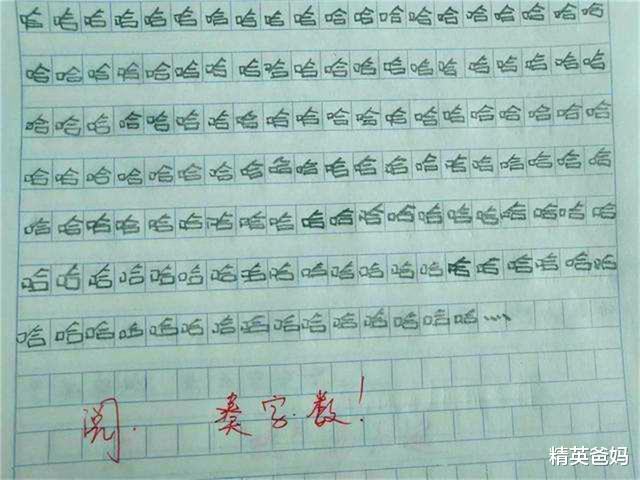 哈哈哈哈哈哈哈哈哈哈哈哈哈哈哈哈哈哈哈哈
哈哈哈哈哈哈哈哈哈哈哈哈哈哈哈哈哈哈哈哈
哈哈哈哈哈哈哈哈哈哈哈哈哈哈哈哈哈哈哈哈
哈哈哈哈哈哈哈哈哈哈哈哈哈哈哈哈哈哈哈哈
哈哈哈哈哈哈哈哈哈哈哈哈哈哈哈哈哈哈哈哈
哈哈哈哈哈哈哈哈哈哈哈哈哈哈哈哈哈哈哈哈
哈哈哈哈哈哈哈哈哈哈哈哈哈哈哈····
阅. 奏字数!
精英爸妈